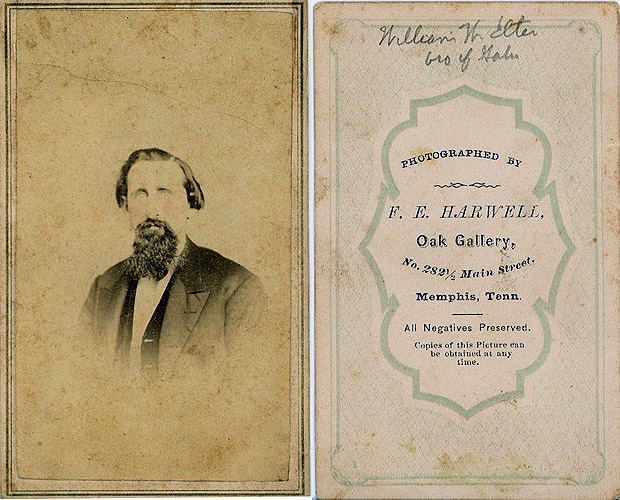 William W. Elter
bro of John
PHOTOGRAPHED BY
F. E. HARWELL,
Oak Gallery,
No. 282½ Main Street.
Memphis, Tenn.
All Negatives Preserved.
Copies of this Picture can
be obtained at any
time.